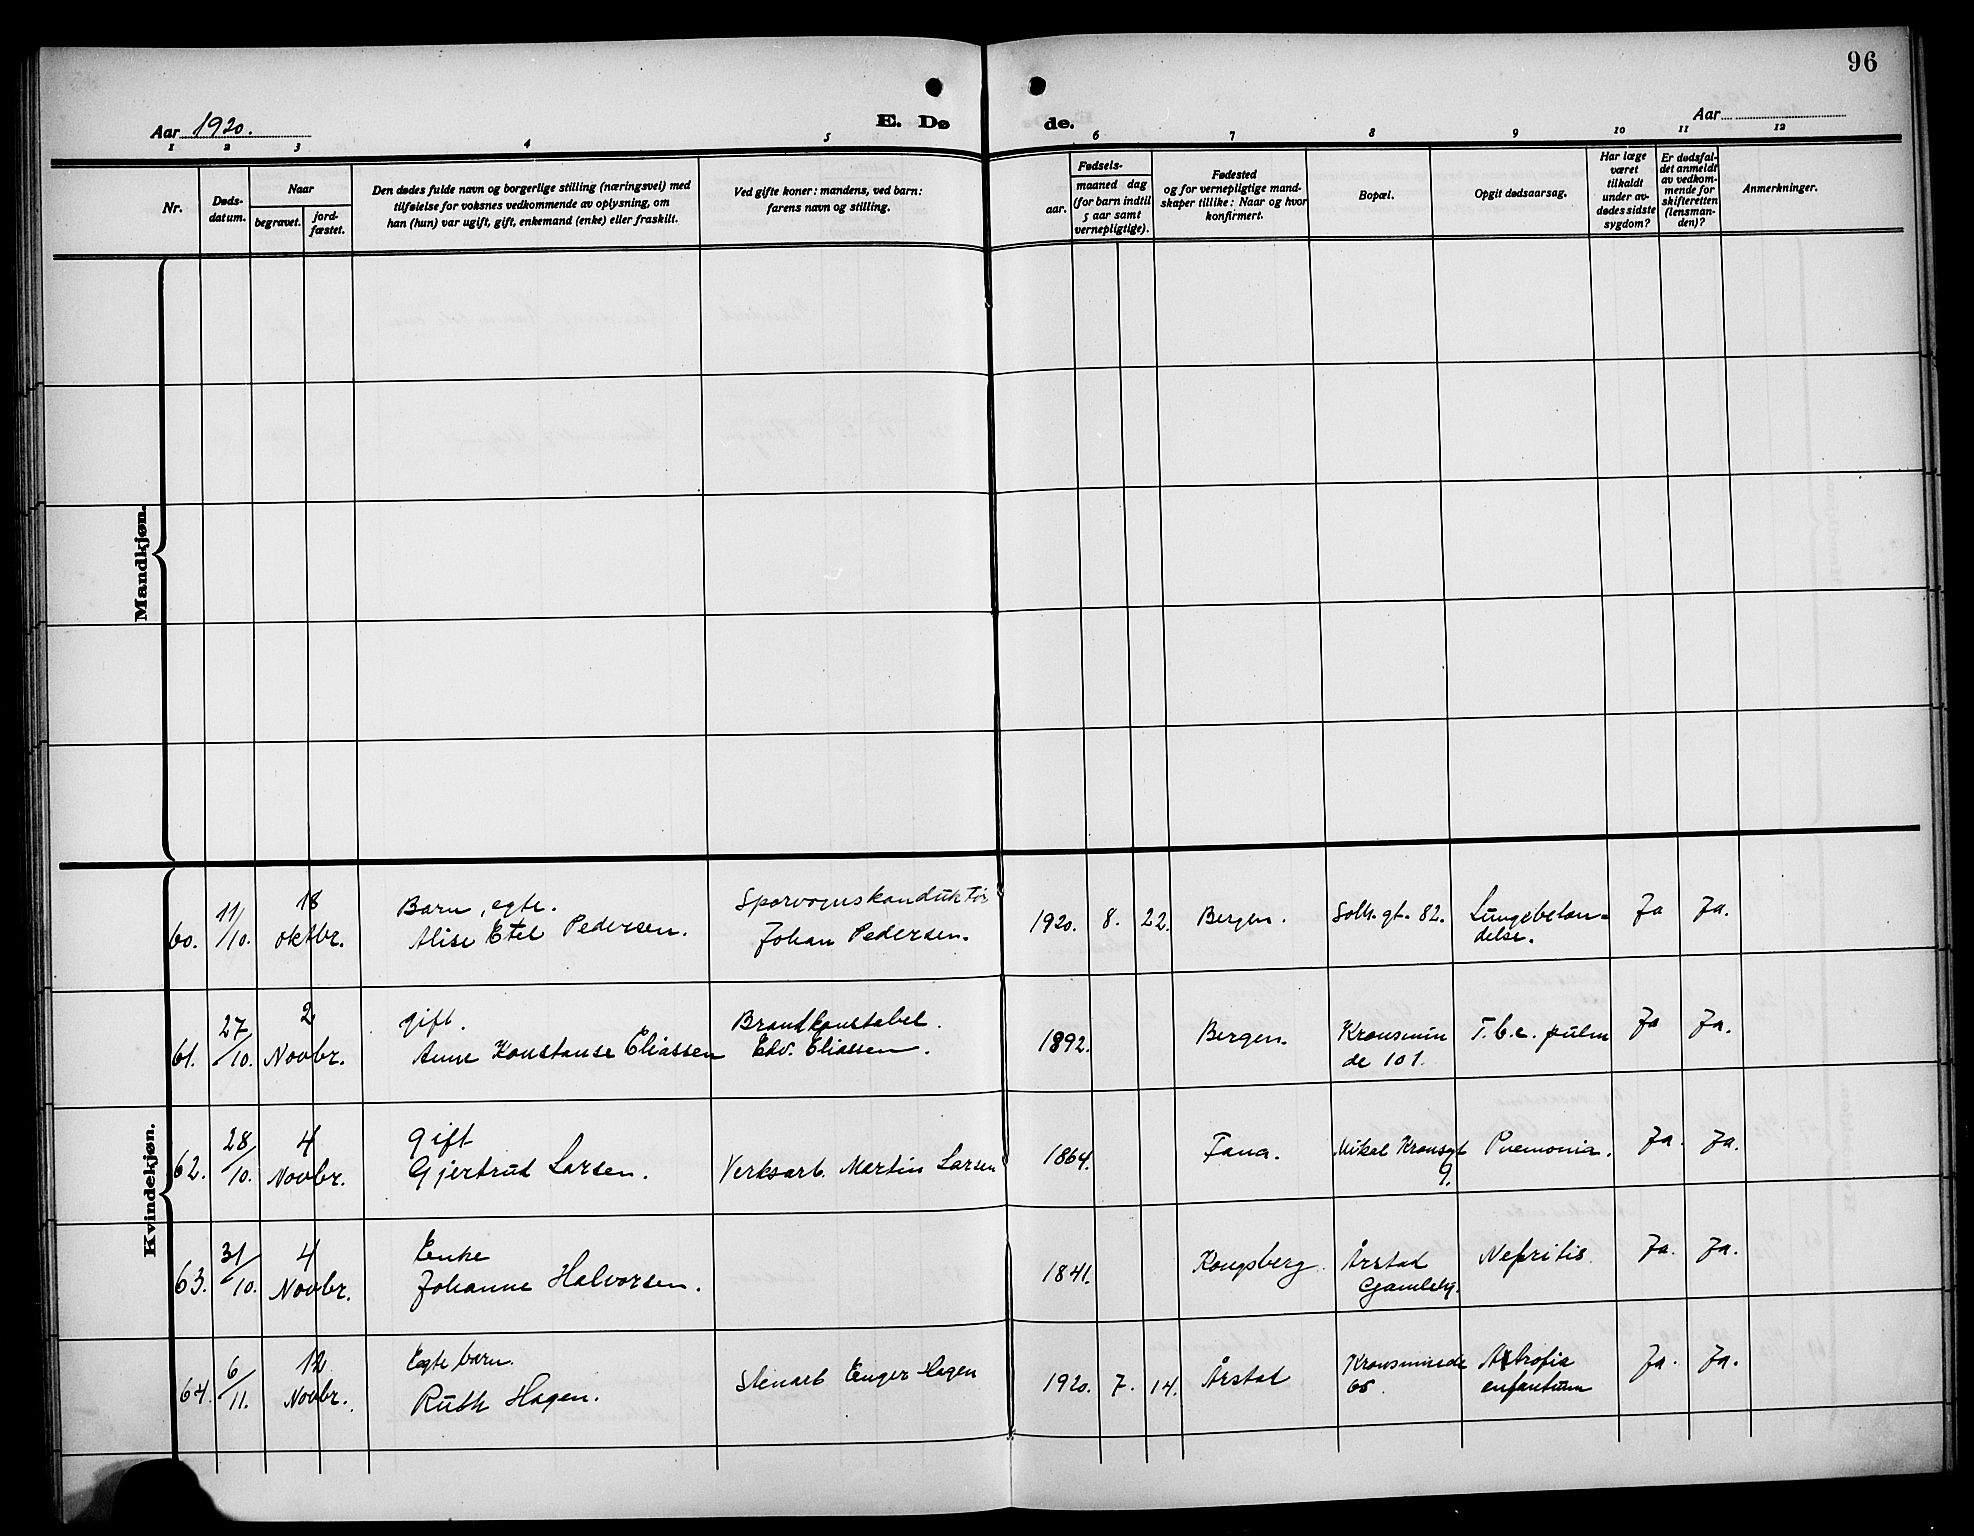 96
Aar 1920.
E. Dø
de.
Aar
1 2 3 4 5 6 7 8 9 10 11 12
Nr.
Døds-
datum.
Naar
begravet.
jord-
fæstet.
Den dødes fulde navn og borgerlige stilling (næringsvei) med
tilføielse for voksnes vedkommende av oplysning, om
han (hun) var ugift, gift, enkemand (enke) eller fraskilt.
Ved gifte koner: mandens, ved barn:
farens navn og stilling.
Fødsels-
aar.
maaned dag
(for barn indtil
5 aar samt
vernepligtige).
Fødested
og for vernepligtige mand-
skaper tillike: Naar og hvor
konfirmert.
Bopæl.
Opgit dødsaarsag.
Har læge
været
tilkaldt
under av-
dødes sidste
sygdom?
Er dødsfal-
det anmeldt
av vedkom-
mende for
skifteretten
(lensman-
den)?
Anmerkninger.
Mandkjøn.
Kvindekjøn.
60. 11/10. 18 oktbr.
Barn, egte.
Alise Etel Pedersen.
Sporvognskonduktør
Johan Pedersen.
1920. 8. 22. Bergen. Solh. gt. 82.
Lungebetæn=
delse.
Ja Ja.
61. 27/10. 2 Novbr.
gift.
Anne Konstanse Eliassen
Brandkonstabel.
Edv. Eliassen.
1892. Bergen.
Kronsmin
de 101.
T.b.c. pulm Ja Ja.
62. 28/10. 4 Novbr.
Gift
Gjertrud Larsen.
Verksarb. Martin Larsen
1864. Fana.
Mikal Kronsgt
9.
Pnemonia. Ja. Ja.
63. 31/10. 4 Novbr.
Enke
Johanne Halvorsen.
1841. Kongsberg.
Årstad
Gamlehj.
Nefritis. Ja. Ja.
64. 6/11. 12 Novbr.
Egte barn.
Ruth Hagen.
Stenarb Enger Hagen
1920. 7. 14. Årstad
Kronsminde
65.
Atrofia
enfantum
Ja. Ja.